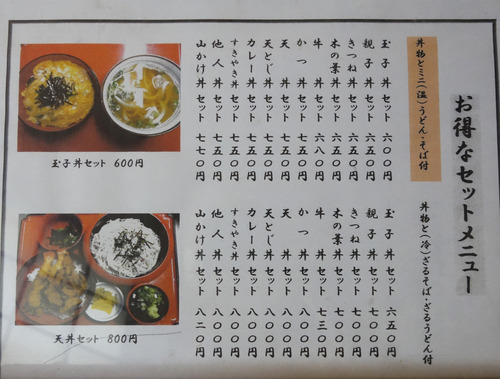 お得なセットメニュー
丼物とミニ(温)うどん・そば付
玉子丼セット 六〇〇円
親子丼セット 六五〇円
きつね丼セット 六五〇円
木の葉丼セット 六五〇円
牛丼セット 六八〇円
かつ丼セット 七五〇円
天丼セット 七五〇円
天とじ丼セット 七五〇円
カレー丼セット 七五〇円
すきやき丼セット 七五〇円
他人丼セット 七五〇円
山かけ丼セット 七七〇円
玉子丼セット 600円
丼物と(冷)ざるそば・ざるうどん付
玉子丼セット 六五〇円
親子丼セット 七〇〇円
きつね丼セット 七〇〇円
木の葉丼セット 七〇〇円
牛丼セット 七三〇円
かつ丼セット 八〇〇円
天丼セット 八〇〇円
天とじ丼セット 八〇〇円
カレー丼セット 八〇〇円
すきやき丼セット 八〇〇円
他人丼セット 八〇〇円
山かけ丼セット 八二〇円
天丼セット 800円